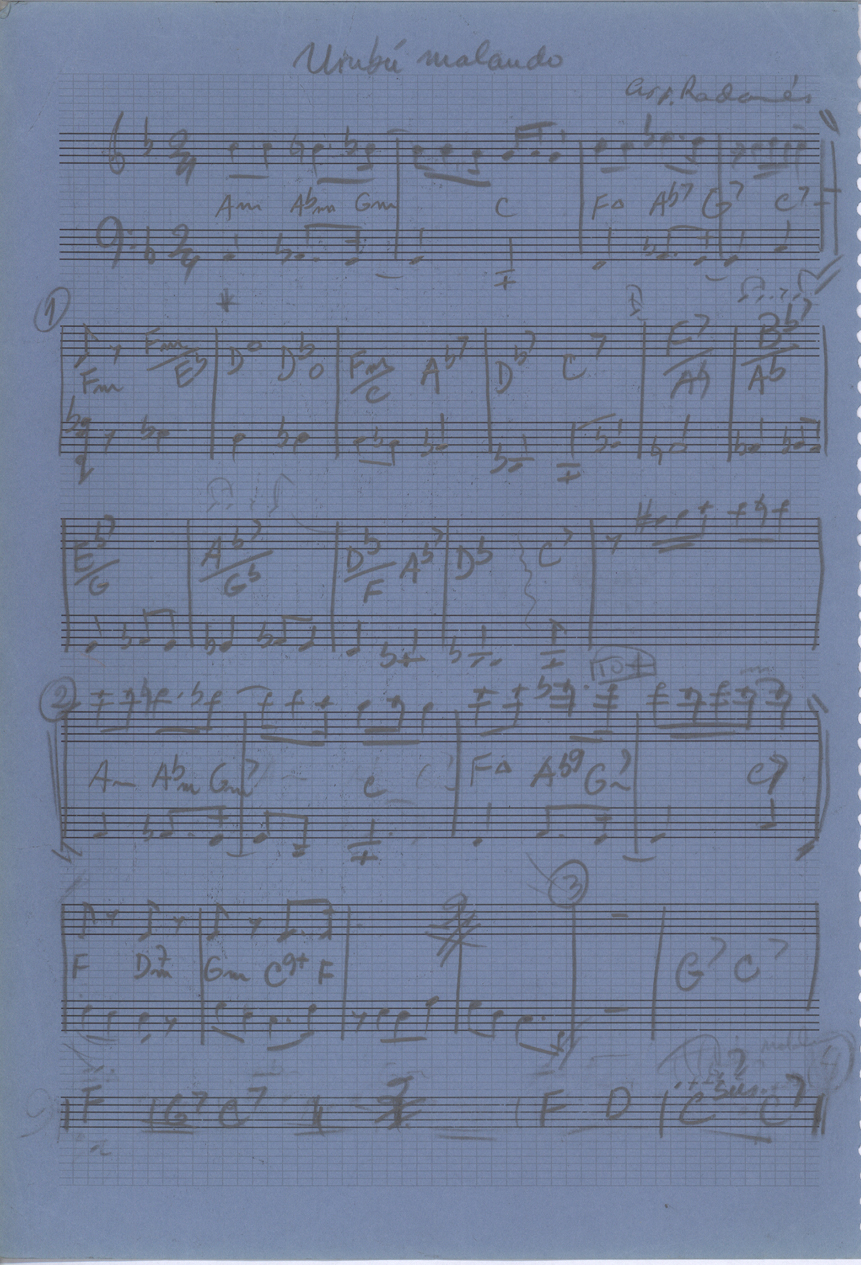 Urubú malando
Arr. Radamés
Am Abm Gm C F△ Ab7 G7 C7
1
Fm Fm/Eb D° Db° Fm/C Ab7 Db7 C7 E7/Ab Bb7/Ab
Eb7/G Ab7/Gb Db/F Ab7 Db C7
2
Am Abm Gm7 C F△ Ab9 Gm7 C7
3
F Dm7 Gm C9+ F G7 C7
F G7 C7 F D C sus. C7